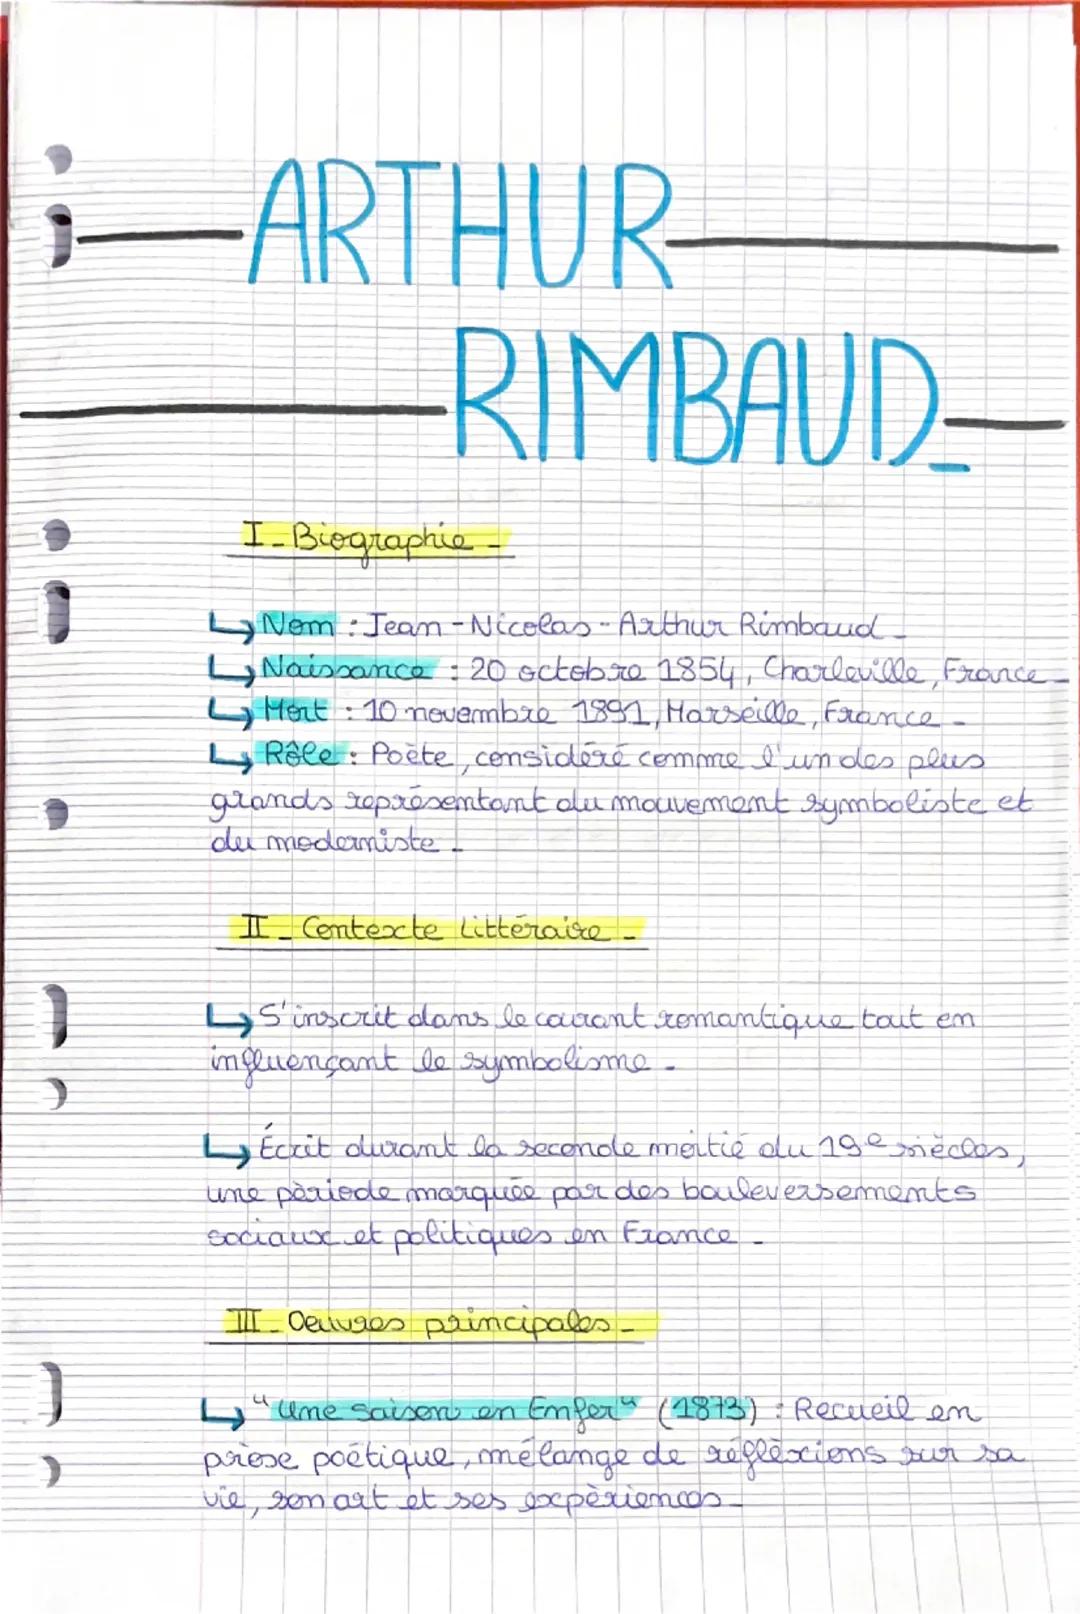 ARTHUR
RIMBAUD_
I_Biographie_
↳ Nom : Jean-Nicolas-Arthur Rimbaud_
↳ Naissance : 20 octobre 1854, Charleville, France_
↳ Mort : 10 novembre 1891, Marseille, France_
↳ Rôle : Poète, considéré comme l'un des plus
grands représentant du mouvement symboliste et
du moderniste_
II_ Contexte littéraire_
↳ S'inscrit dans le courant romantique tout en
influençant le symbolisme_
↳ Écrit durant la seconde moitié du 19e siècles,
une pèriode marquée par des bouleversements
sociaux et politiques en France_
III_Oeuvres principales_
↳ "Une saison en Enfer" (1873) : Recueil en
prose poétique, mélange de réflèxions sur sa
vie, son art et ses expèriences_